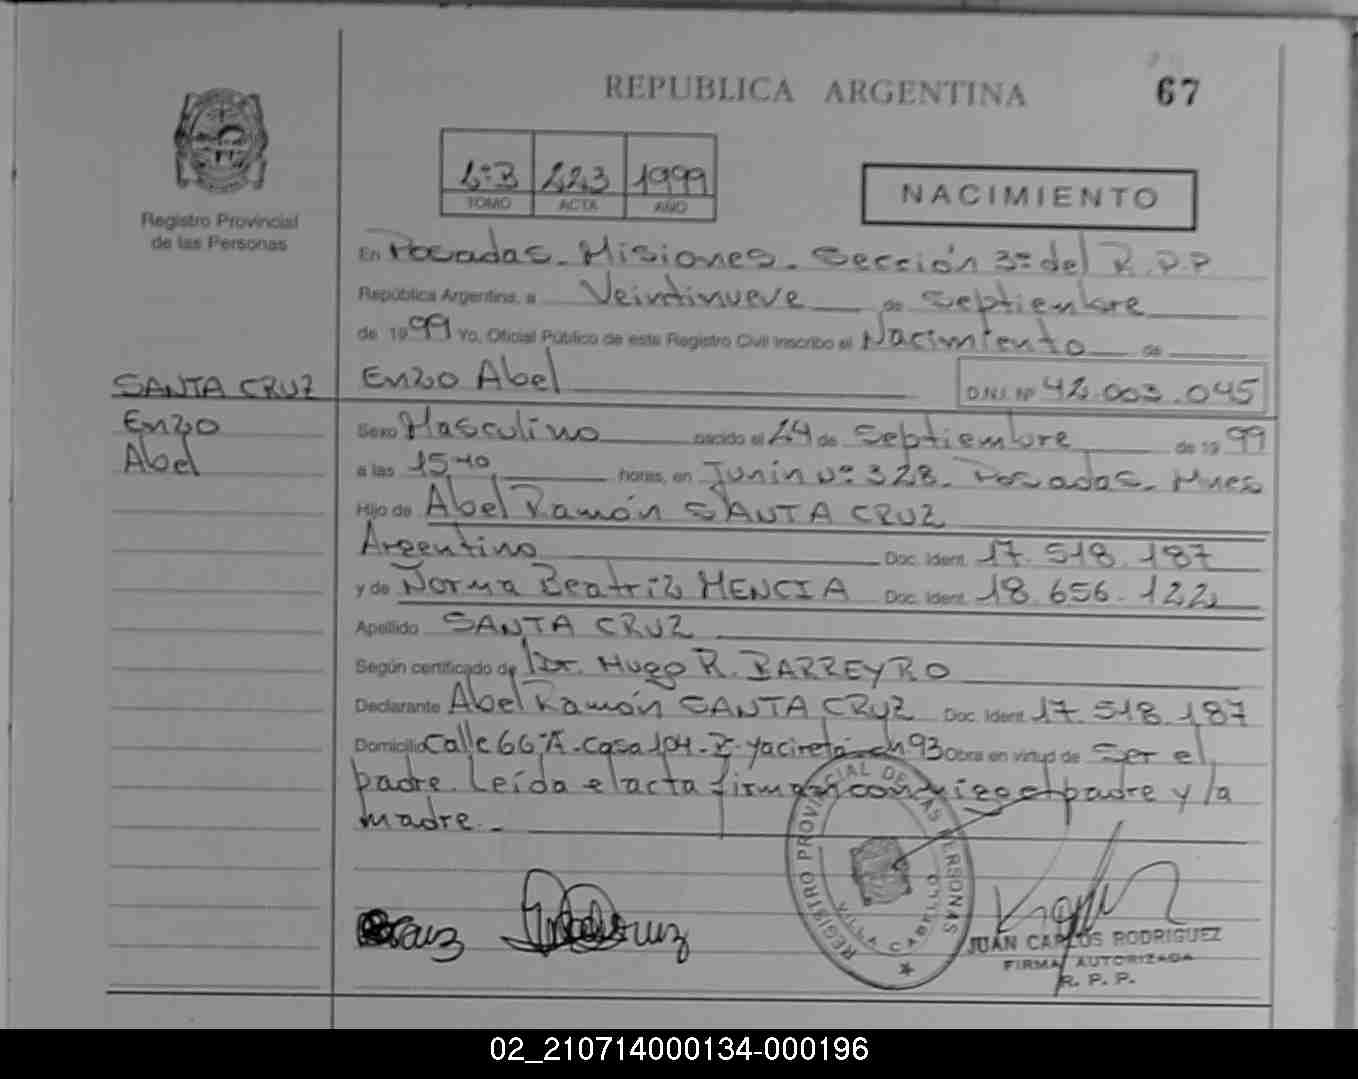 REPUBLICA ARGENTINA
67
1º B 223 1999
TOMO ACTA AÑO
NACIMIENTO
Registro Provincial
de las Personas
En Posadas - Misiones - Sección 3º del R.P.P
República Argentina, a Veintinueve de Septiembre
de 1999 Yo, Oficial Público de este Registro Civil inscribo el Nacimiento de
SANTA CRUZ
Enzo Abel
D.N.I. Nº 42.003.045
Enzo
Abel
Sexo Masculino nacido el 24 de Septiembre de 1999
a las 15:40 horas, en Junín Nº 328. Posadas - Mnes
Hijo de Abel Ramón SANTA CRUZ
Argentino Doc. Ident. 17.518.187
y de Norma Beatriz MENCIA Doc. Ident. 18.656.122
Apellido SANTA CRUZ
Según certificado de Dr. Hugo R. BARREYRO
Declarante Abel Ramón SANTA CRUZ Doc. Ident. 17.518.187
Domicilio Calle 66-A - Casa 104 - Yacireta - ch 93 Obra en virtud de Ser el
padre. Leída el acta firman conmigo el padre y la
madre.-
REGISTRO PROVINCIAL DE LAS PERSONAS
VILLA CABELLO
JUAN CARLOS RODRIGUEZ
FIRMA AUTORIZADA
R. P. P.
02_210714000134-000196